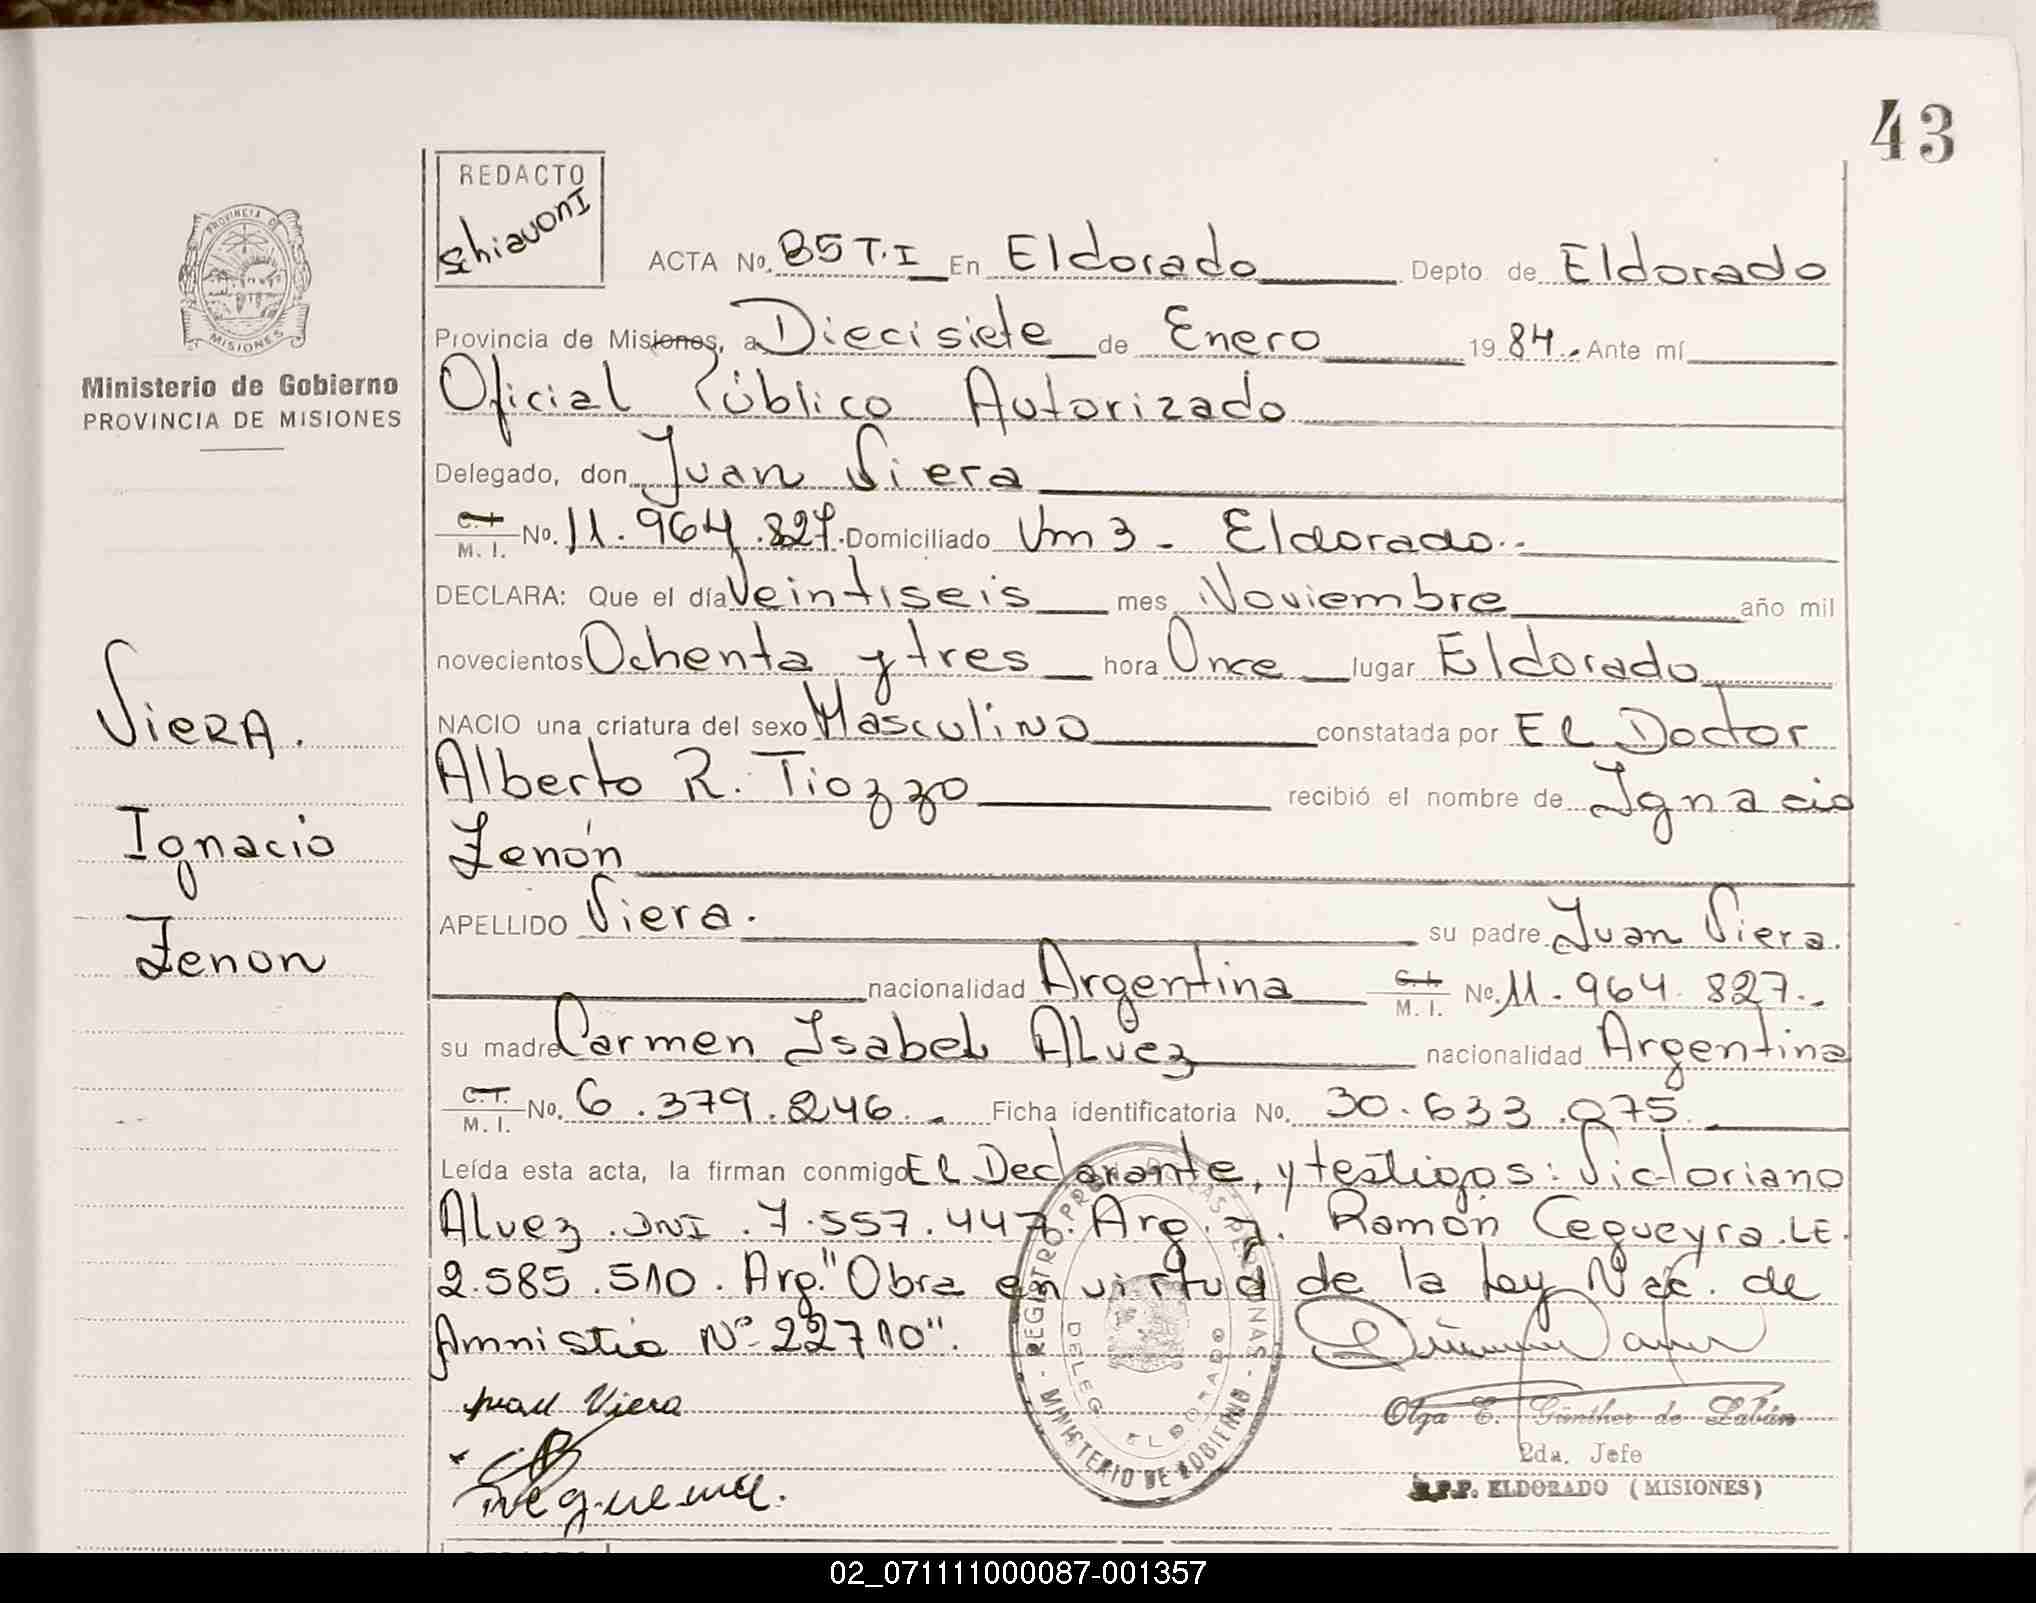 43
REDACTO
Schiavoni
PROVINCIA DE
MISIONES
Ministerio de Gobierno
PROVINCIA DE MISIONES
ACTA No. 85 T.I En Eldorado Depto de Eldorado
Provincia de Misiones, a Diecisiete de Enero 1984. Ante mí
Oficial Público Autorizado
Delegado, don Juan Viera
C.I. M.I. No. 11.964.827. Domiciliado Km 3 - Eldorado..
DECLARA: Que el día Veintiseis mes Noviembre año mil
novecientos Ochenta y tres hora Once lugar Eldorado
NACIO una criatura del sexo Masculino constatada por El Doctor
Alberto R. Tiozzo recibió el nombre de Ignacio
Zenón
APELLIDO Viera. su padre Juan Viera.
nacionalidad Argentina C.I. M.I. No. 11.964.827..
su madre Carmen Isabel Alvez nacionalidad Argentina
C.I. M.I. No. 6.379.246. Ficha identificatoria No. 30.633.275.
Leída esta acta, la firman conmigo El Declarante, y testigos: Victoriano
Alvez. DNI. 7.557.447. Arg. y. Ramón Cegueyra. LE.
2.585.510. Arg. "Obra en virtud de la Ley Nac. de
Amnistia Nº 22710".
Viera.
Ignacio
Zenon
Juan Viera
REGISTRO PROV. DE LAS PERSONAS
DELEG. ELDORADO
- MINISTERIO DE GOBIERNO -
Olga E. Günther de Labán
2da. Jefe
R.P.P. ELDORADO (MISIONES)
02_071111000087-001357